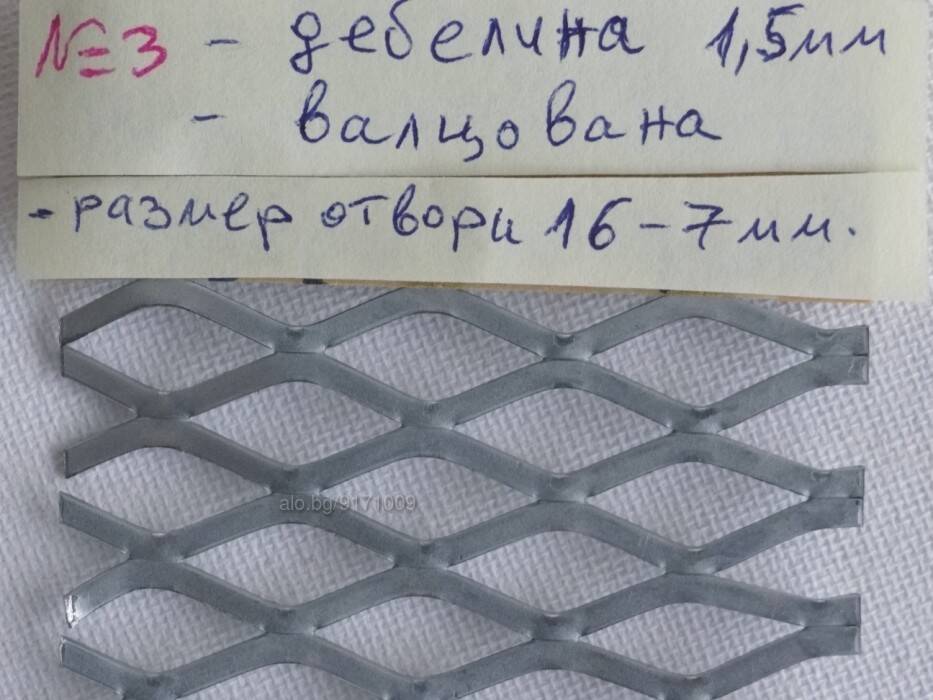 №3 - дебелина 1,5мм
- валцована
- размер отвори 16-7мм.
alo.bg/9171009